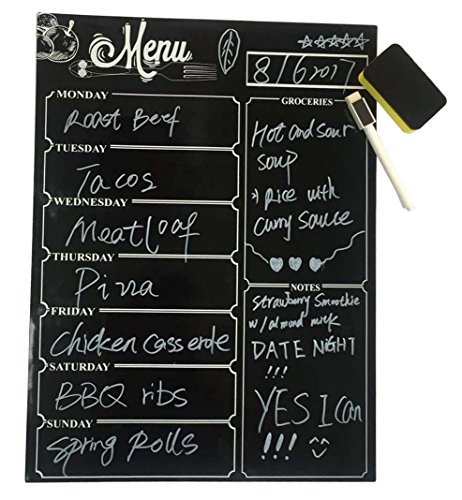 Menu
8/6 2017
MONDAY
Roast Beef
TUESDAY
Tacos
WEDNESDAY
Meatloaf
THURSDAY
Pizza
FRIDAY
Chicken Casserole
SATURDAY
BBQ ribs
SUNDAY
Spring Rolls
GROCERIES
Hot and sour
soup
Rice with
curry sauce
NOTES
Strawberry Smoothie
w/ almond milk
DATE NIGHT
!!!
YES I Can
!!!